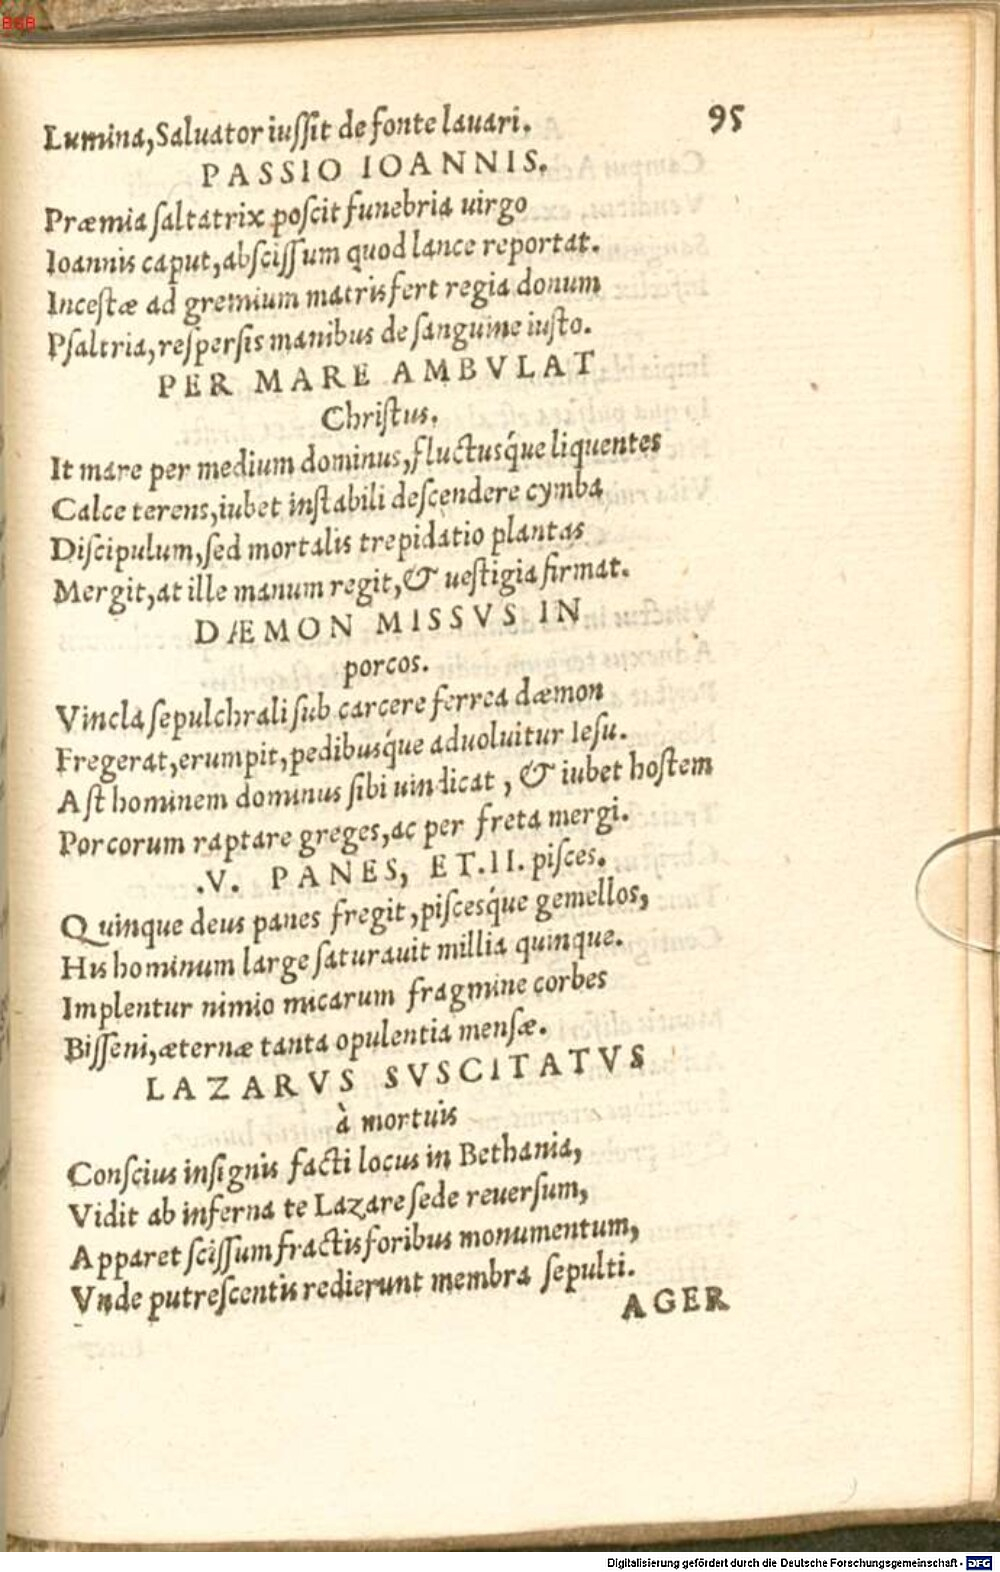 BSB
Lumina, Saluator iussit de fonte lauari. 95
PASSIO IOANNIS.
Præmia saltatrix poscit funebria uirgo
Ioannis caput, abscissum quod lance reportat.
Incestæ ad gremium matris fert regia donum
Psaltria, respersis manibus de sanguine iusto.
PER MARE AMBVLAT
Christus.
It mare per medium dominus, fluctusq́ue liquentes
Calce terens, iubet instabili descendere cymba
Discipulum, sed mortalis trepidatio plantas
Mergit, at ille manum regit, & uestigia firmat.
DÆMON MISSVS IN
porcos.
Vincla sepulchrali sub carcere ferrea dæmon
Fregerat, erumpit, pedibusq́ue aduoluitur Iesu.
Ast hominem dominus sibi uindicat, & iubet hostem
Porcorum raptare greges, ac per freta mergi.
.V. PANES, ET.II. pisces.
Quinque deus panes fregit, piscesq́ue gemellos,
His hominum large saturauit millia quinque.
Implentur nimio micarum fragmine corbes
Bisseni, æternæ tanta opulentia mensæ.
LAZARVS SVSCITATVS
à mortuis
Conscius insignis facti locus in Bethania,
Vidit ab inferna te Lazare sede reuersum,
Apparet scissum fractis foribus monumentum,
Vnde putrescentis redierunt membra sepulti.
AGER
Digitalisierung gefördert durch die Deutsche Forschungsgemeinschaft - DFG